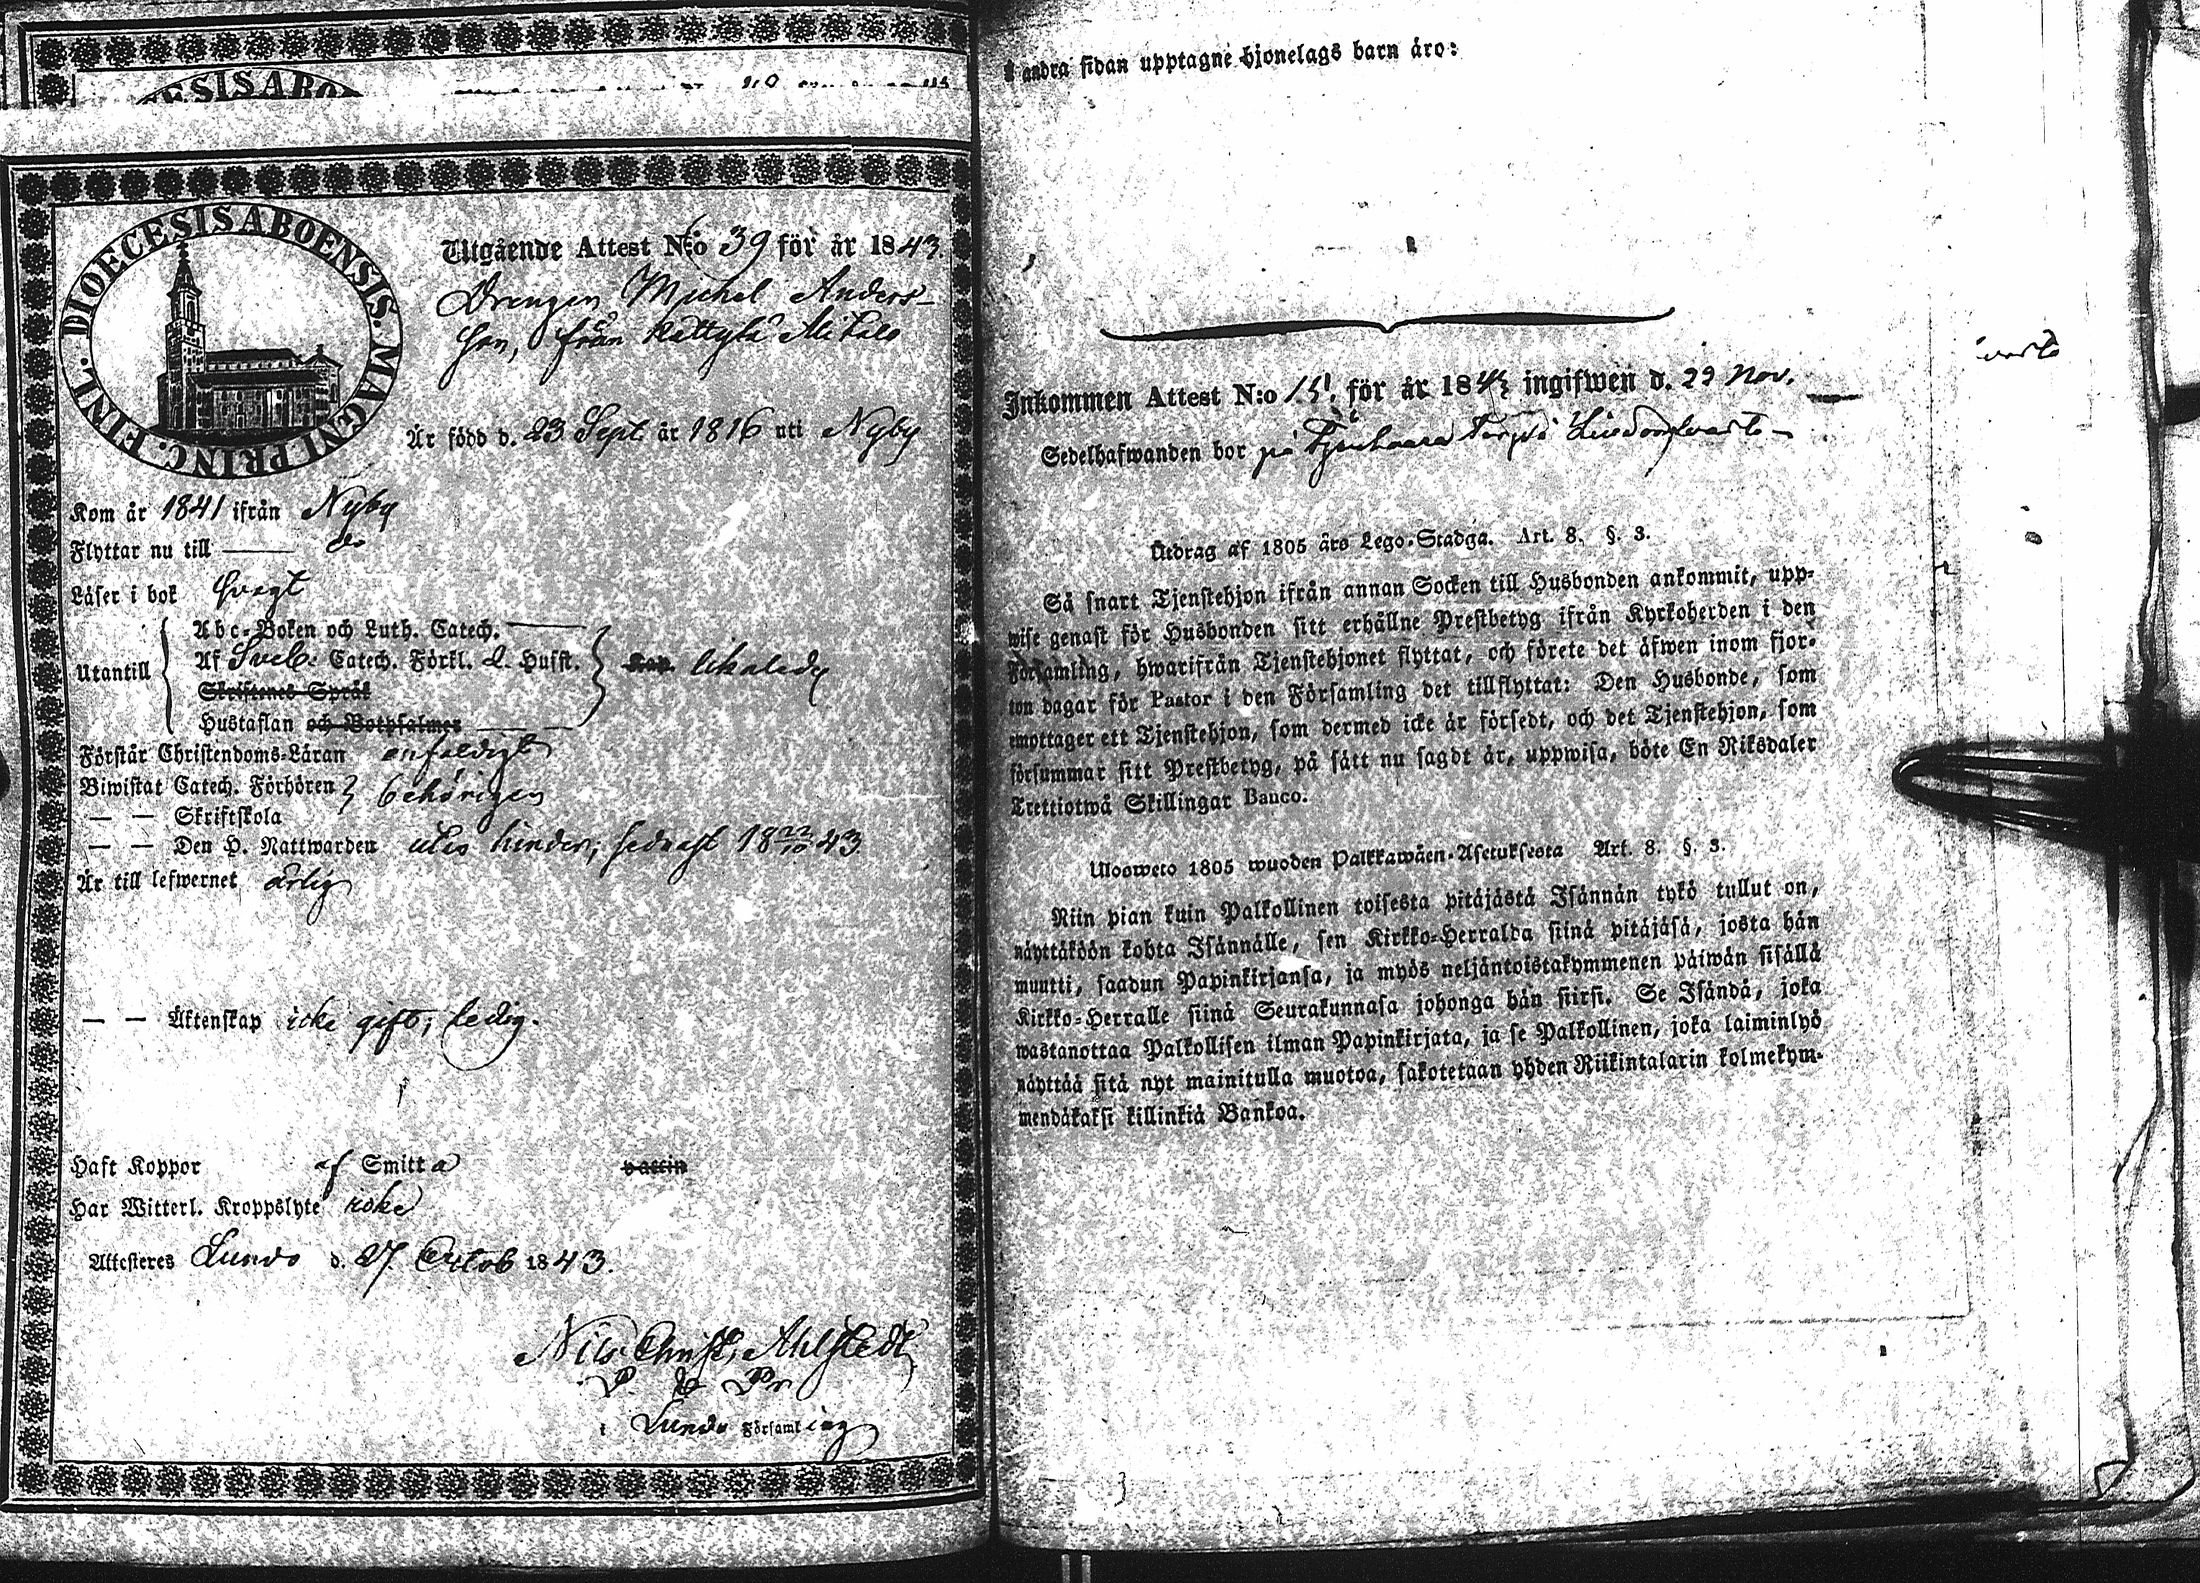 DIOECESIS ABO
DIOECESIS ABOENSIS. MAGNI PRINC. FINL.
Utgående Attest N:o 39 för år 1843.
Drengen Michel Anders-
son, från Kättylä Mikals
Är född d. 23 Sept. år 1816 uti Nyby
Kom år 1841 ifrån Nyby
Flyttar nu till —— do
Läser i bok svagt
Abc-Boken och Luth. Catech.
Utantill Af Sveb. Catech. Förkl. d. Hufst. Kap. likaledes
Skriftenes Språk
Hustaflan och Botpsalmer
Förstår Christendoms-Läran enfaldigt
Biwistat Catech. Förhören behörigen
— — Skriftskola
— — Den H. Nattwarden utan hinder, sednast 18 22/10 43.
Är till lefwernet ärlig
— — Äktenskap icke gift, ledig.
Haft Koppor af Smitta vaccin
Har Witterl. Kroppslyte icke
Attesteres Lundo d. 27 Octob 1843.
Nils Christ. Ahlstedt
i Lundo Församling
I andra sidan upptagne hjonelags barn äro:
Inkommen Attest N:o 151. för år 1843 ingifwen d. 29 Nov.
Sedelhafwanden bor på
Utdrag af 1805 års Lego-Stadga. Art. 8. §. 3.
Så snart Tjenstehjon ifrån annan Socken till Husbonden ankommit, upp-
wise genast för Husbonden sitt erhållne Prestbetyg ifrån Kyrkoherden i den
Församling, hwarifrån Tjenstehjonet flyttat, och förete det äfwen inom fjor-
ton dagar för Pastor i den Församling det tillflyttat: Den Husbonde, som
emottager ett Tjenstehjon, som dermed icke är försedt, och det Tjenstehjon, som
försummar sitt Prestbetyg, på sätt nu sagdt är, uppwisa, böte En Riksdaler
Trettiotwå Skillingar Banco.
Uloosweto 1805 wuoden Palkkawäen-Asetuksesta Art. 8. §. 3.
Niin pian kuin Palkollinen toisesta pitäjästä Isännän tykö tullut on,
näyttäköön kohta Isännälle, sen Kirkko-Herralda siinä pitäjäsä, josta hän
muutti, saadun Papinkirjansa, ja myös neljäntoistakymmenen päiwän sisällä
Kirkko-Herralle siinä Seurakunnasa johonga hän siirsi. Se Isändä, joka
wastanottaa Palkollisen ilman Papinkirjata, ja se Palkollinen, joka laiminlyö
näyttää sitä nyt mainitulla muotoa, sakotetaan yhden Riikintalarin kolmekym-
mendäkaksi killinkiä Bankoa.